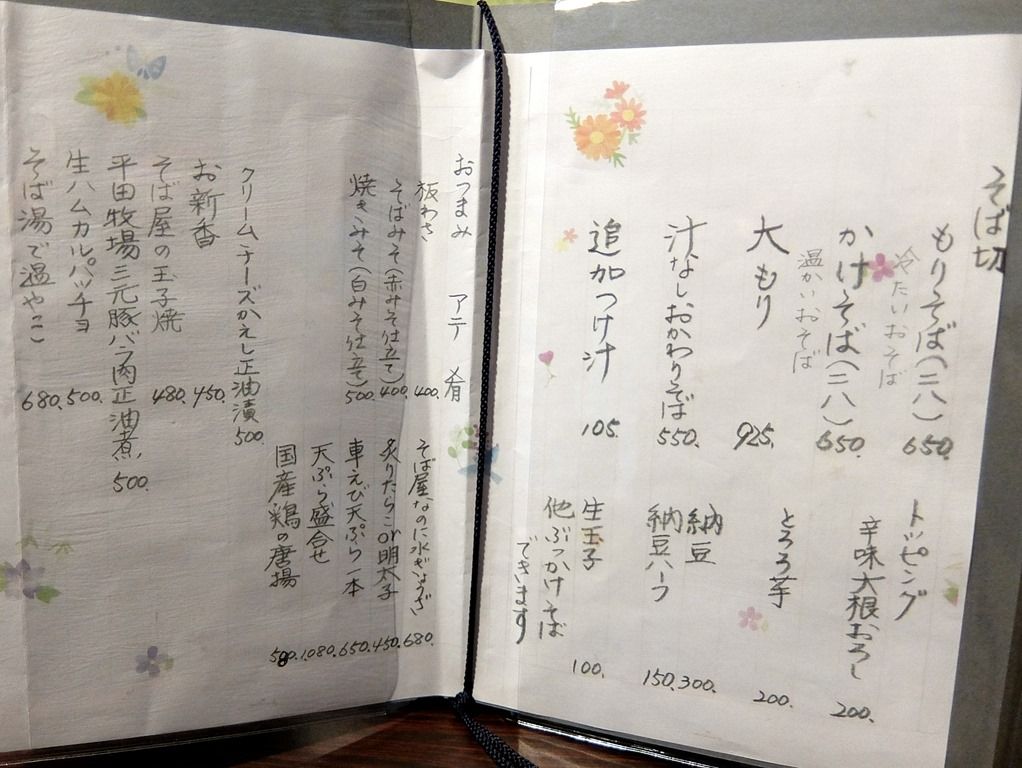 そば切
もりそば(二八) 650.
冷たいおそば
かけそば(二八) 650.
温かいおそば
大もり 925.
汁なしおかわりそば 550.
追加つけ汁 105.
トッピング
辛味大根おろし 200.
とろろ芋 200.
納豆 300.
納豆ハーフ 150.
生玉子 100.
他ぶっかけそば
できます
おつまみ アテ 肴
板わさ 400.
そばみそ(赤みそ仕立て) 400.
焼きみそ(白みそ仕立て) 500.
クリームチーズかえし正油漬 500.
お新香 450.
そば屋の玉子焼 480.
平田牧場三元豚バラ肉正油煮 500.
生ハムカルパッチョ 500.
そば湯で温やっこ 680.
そば屋なのに水ぎょうざ 680.
炙りたらこor明太子 450.
車えび天ぷら一本 650.
天ぷら盛合せ 1.080.
国産鶏の唐揚 580.